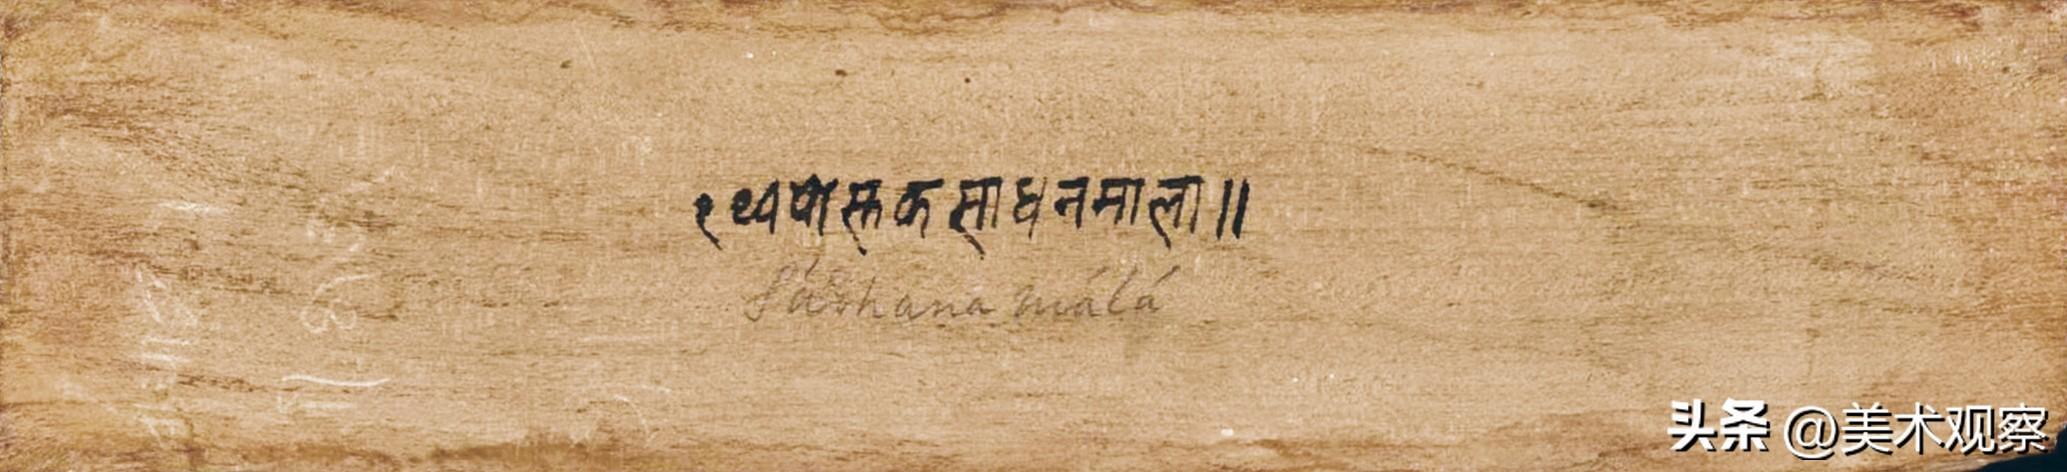 १ थ्व साधनमाला॥
Sádhana málá
头条 @美术观察